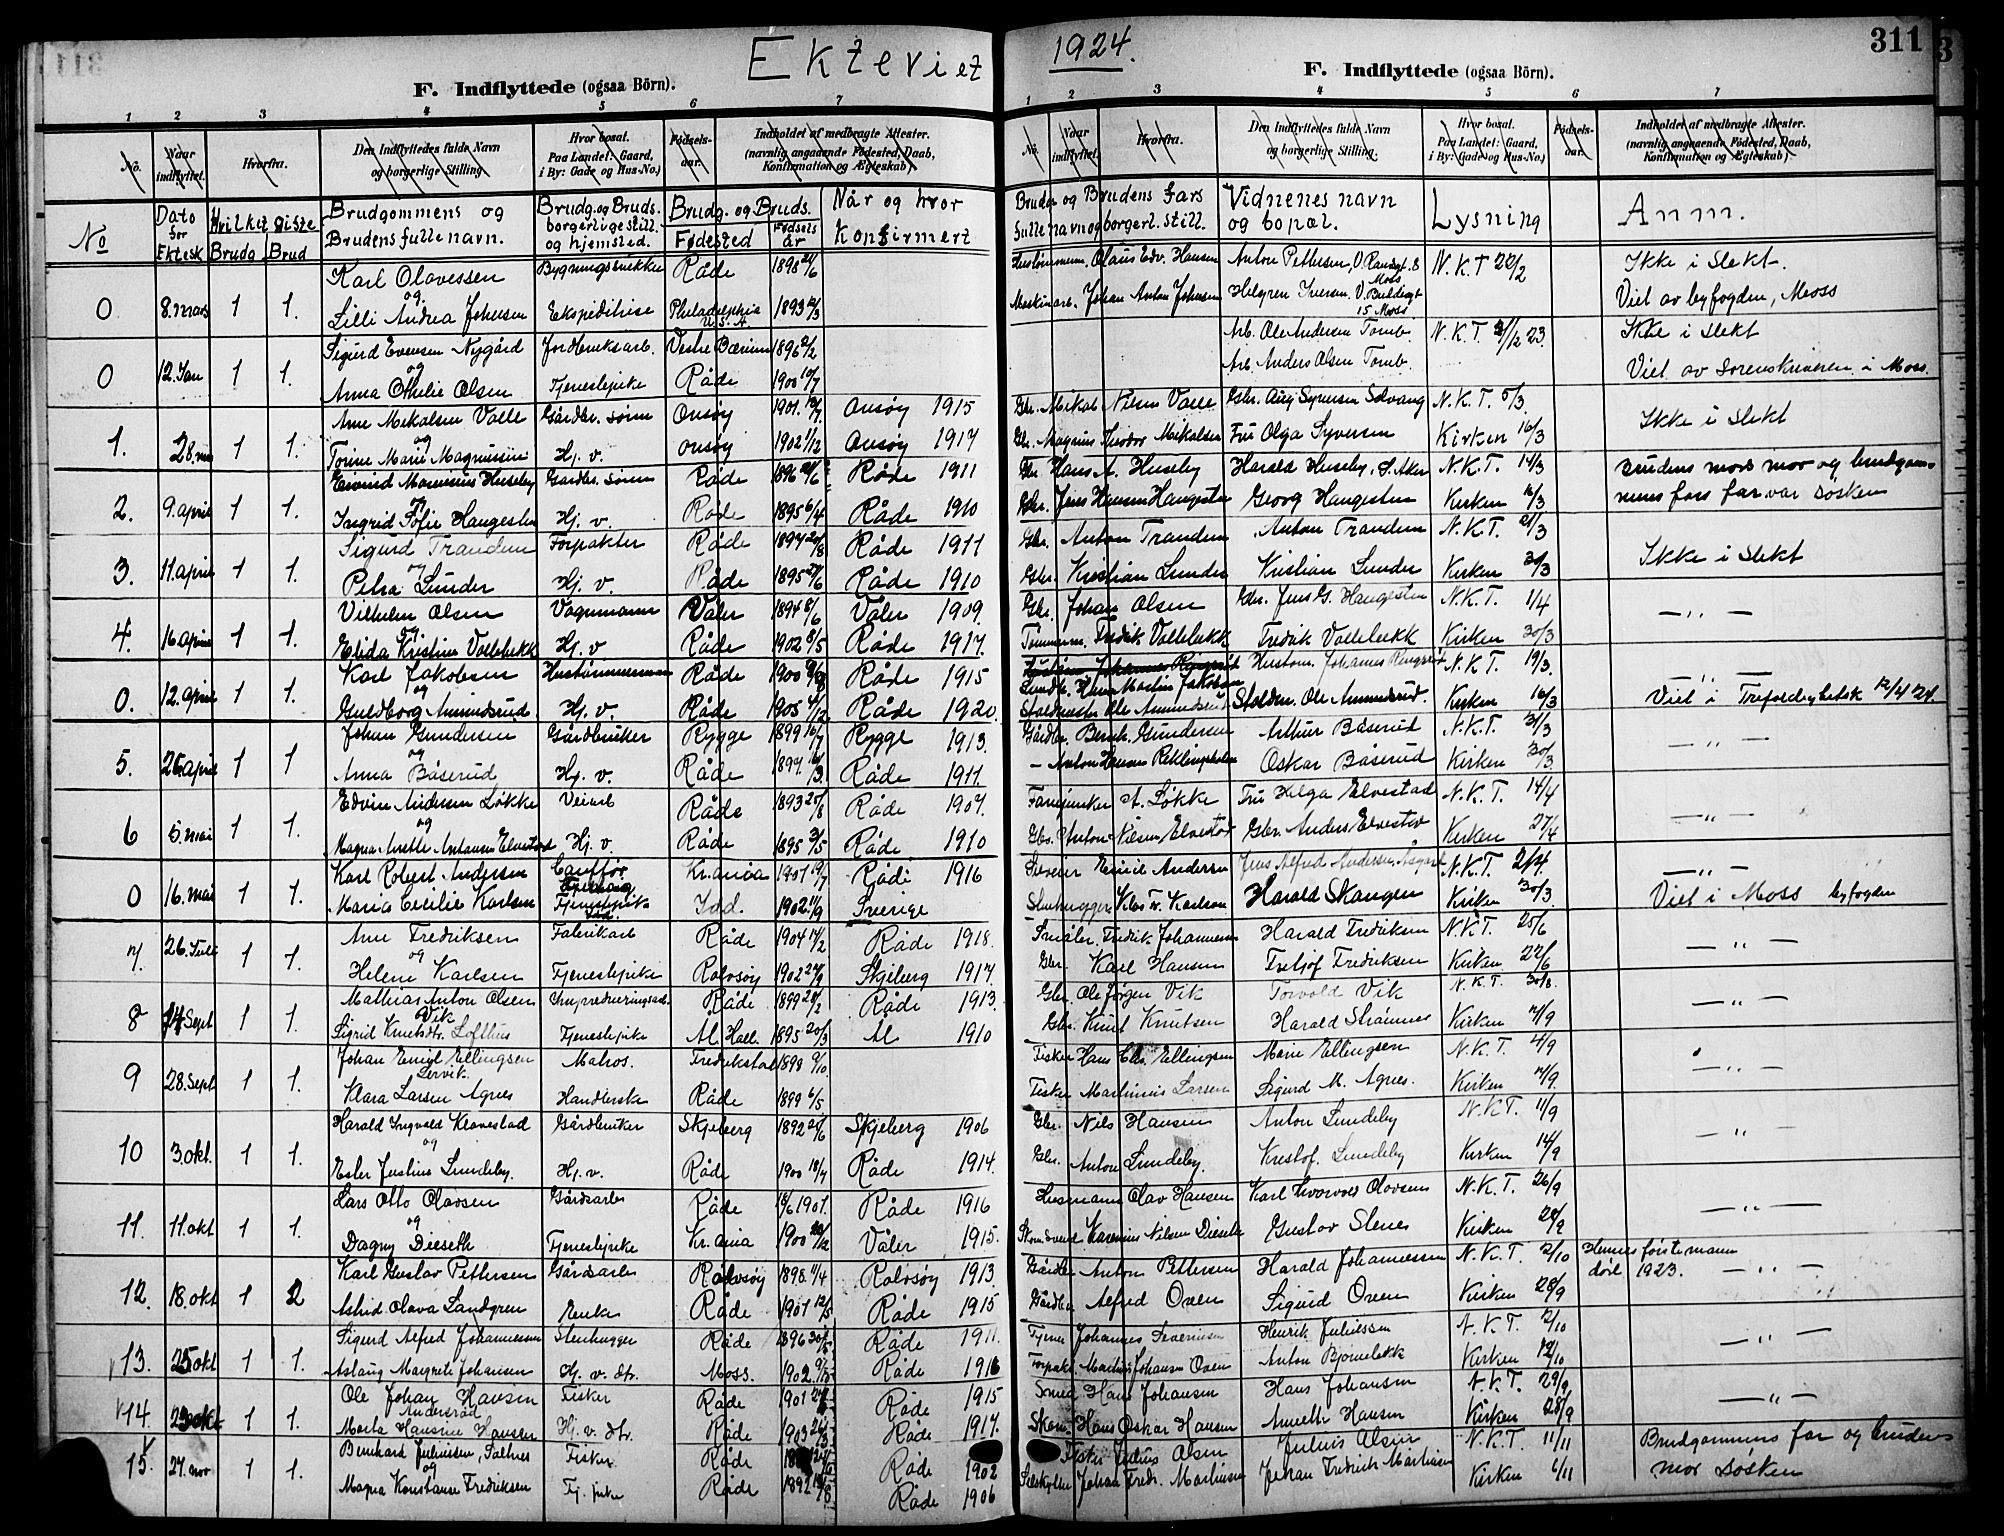 Ektevi et 1924.
311
F. Indflyttede (ogsaa Börn).
F. Indflyttede (ogsaa Börn).
1 2 3 4 5 6 7
1 2 3 4 5 6 7
No. Naar indflyttet. Hvorfra. Den Indflyttedes fulde Navn og borgerlige Stilling. Hvor bosat. Paa Landet: Gaard, i By: Gade og Hus-No.) Fødsels-aar. Indholdet af medbragte Attester. (navnlig angaaende Fødested, Daab, Konfirmation og Ægteskab)
No. Naar indflyttet. Hvorfra. Den Indflyttedes fulde Navn og borgerlige Stilling. Hvor bosat. Paa Landet: Gaard, i By: Gade og Hus-No.) Fødsels-aar. Indholdet af medbragte Attester. (navnlig angaaende Fødested, Daab, Konfirmation og Ægteskab)
No Dato for Ektesk Hvilket giste Brudg. Brud Brudgommens og Brudens fulle navn. Brudg. og Bruds. borgerlige still. og hjemsted. Brudg. og Bruds. Fødested Fødsels år Når og hvor konfirmert
Brudg. og Brudens fars fulle navn og borgerl. still. Vidnenes navn og bopæl. Lysning Anm.
Karl Olavessen Bygningssnikker Råde 1898 Olaus Edv. Hansen Anton Pettersen, N.K.T 22/2 Ikke i slekt.
0 8. mars 1 1. og
Lilli Andrea Johnsen Ekspeditrise Philadelphia U.S.A 1893 Maskinarb. Johan Anton Johnsen Helgren Iversen 15 Moss Viet av byfogden, Moss
Sigurd Evensen Nygård Jordbruksarb. Vestre Bærum 1896 2/2 Arb. Ole Andersen Tomb. N.K.T. 23. Ikke i slekt
0 12. Jan 1 1. og
Anna Othilie Olsen Tjenestepike Råde 1900 10/7 Arb. Anders Olsen Tomb. Viet av sorenskriveren i Moss.
Arne Mikalsen Valle Gårdbr. sønn Onsøy 1901 Onsøy 1915 Gbr. Mikal Nilsen Valle Gbr. Aug Syversen Solvang N.K.T. 5/3 Ikke i slekt
1. 28. 1 1. og
Torine Marie Magnussen Hj. v. Onsøy 1902 1/12 Onsøy 1917 Gbr. Magnus Teodor Mikalsen Fru Olga Syversen Kirken 16/3
Eivind Marinius Huseby Gårdbr. sønn Råde 1896 Råde 1911 Gbr Hans A. Huseby Harald Huseby, N.K.T. 14/3 Brudens mors mor og brudgom-
2. 9. april 1 1. og
Ingrid Sofie Haugesten Hj. v. Råde 1895 6/4 Råde 1910 Gbr. Jens Hansen Haugesten Georg Haugesten Kirken 16/3 mens fars far var søsken
Sigurd Trandem Forpakter Råde 1894 Råde 1911 Gbr. Anton Trandem Anton Trandem N.K.T. 21/3 Ikke i slekt
3. 11. april 1 1. og
Petra Lunder Hj. v. Råde 1895 Råde 1910 Gbr. Kristian Lunder Kristian Lunder Kirken 30/3
Vilhelm Olsen Vognmann Våler 1894 8/6 Våler 1909. Gbr. Johan Olsen Gbr. Jens G. Haugesten N.K.T. 1/4 — „ —
4. 16 april 1 1. og
Elida Kristine Vollebekk Hj. v Råde 1902 8/5 Råde 1917. Tømmerm. Fredrik Vollebekk Fredrik Vollebekk Kirken 30/3
Karl Jakobsen Hustømmermann Råde 1900 Råde 1915 Hans Martin Jakobsen Hustøm. Johannes Ringsrød N.K.T. 19/3 — „ —
0. 12. april 1 1. og
Guldborg Amundsrud Hj. v. Råde 1905 Råde 1920. Stoldmester Ole Amundsrud Ole Amundsrud Kirken 16/3 Viet i Trefoldighetsk 12/4 24.
Johan Gundersen Gårdbruker Rygge 1899 16/7 Rygge 1913. Gårdbr. Bernh. Gundersen Arthur Båserud N.K.T. 31/3 — „ —
5. 26. april 1 1 og
Anna Båserud Hj. v. Råde 1897. Råde 1911. — Anton Hansen Oskar Båserud Kirken 30/3
Edvin Andersen Løkke Veiarb Råde 1893 25/8 Råde 1907. A. Løkke Fru Helga Elvestad N.K.T. 14/4 — „ —
6 5. mai 1 1. og
Magna Elvestad Hj. v. Råde 1895 31/5 Råde 1910 Gbr. Anton Nilsen Elvestad Gbr Anders Elvestad Kirken 27/4
Karl Robert Andersen Cauffør Kr.ania 1901 19/7 Råde 1916 Emil Andersen Jens Alfred Andersen, N.K.T. 2/4. — „ —
0 16. mai 1 1.
Maria Cecilie Karlsen Tjenestepike Idd. 1902 11/9 Sverige Stenhugger Klas V. Karlsen Harald Skaugen Kirken 30/3 Viet i Moss byfogden
Arne Fredriksen Fabrikarb Råde 1904 Råde 1918. Småbr. Fredrik Johannesen Harald Fredriksen N.K.T. 25/6 — „ —
7. 26. Juli 1 1. og
Helene Karlsen Tjenestepike Rolvsøy 1902 24/9 Skjeberg 1917. Gbr. Karl Hansen Fretjof Fredriksen Kirken 22/6
Mathias Anton Olsen Vik Råde 1899 Råde 1913. Gbr. Ole Jørgen Vik Torvald Vik N.K.T. 30/8. — „ —
8 14 Sept 1 1.
Sigrid Knutsdtr. Lofthus Tjenestepike Ål. Hall. 1895 20/3 Ål 1910 Gbr. Knut Knutsen Harald Strømnes Kirken 7/9
Johan Emil Ellingsen Lervik Matros. Fredrikstad 1898 9/10. Fisker Hans Chr. Ellingsen Marie Ellingsen N.K.T. 4/9 — „ —
9 28. Sept 1 1.
Klara Larsen Agnes Handlerske Råde 1899 6/5 Fisker Martinius Larsen Sigurd M. Agnes. Kirken 7/9.
Harald Ingvald Klavestad Gårdbruker Skjeberg 1892 Skjeberg 1906 Gbr. Nils Hansen Anton Lundeby N.K.T. 11/9 — „ —
10 3. okt. 1 1. og
Ester Justine Lundeby. Hj. v. Råde 1900 18/7 Råde 1914. Gbr. Anton Lundeby. Kristof. Lundeby Kirken 14/9
Lars Otto Olavsen Gårdsarb Råde 1901. Råde 1916 Husmann Olav Hansen Karl Olavsen N.K.T. 26/9 — „ —
11. 11. okt 1 1. og
Dagny Dieseth Tjenestepike Kr.ania 1900 Våler 1915. Karenius Nilsen Dieseth Gustav Slenes Kirken
Karl Gustav Pettersen Gårdsarb Rolvsøy 1898. 11/4 Rolvsøy 1913. Gårdbr Anton Pettersen Harald Johannessen N.K.T. 2/10 Hennes første mann død 1923. — „ —
12. 18. okt 1 2
Astrid Olava Sandgren Enke Råde 1901 12/5 Råde 1915 Gårdbr Alfred Oven Sigurd Oven Kirken 28/9
Sigurd Alfred Johannessen Stenhugger Råde 1896 Råde 1911. Johannes Severinsen Henrik Juliussen N.K.T. 2/10 — „ —
13. 25 okt 1 1.
Aslaug Margrete Johansen Hj. v. dtr. Moss. 1902. Råde 1916 Forpakt. Martin Johansen Oven Anton Bjørnebekk Kirken 12/10
Ole Johan Hansen Fisker Råde 1901 Råde 1915 Smed Hans Johansen Hans Johansen N.K.T. 29/9 — „ —
14. okt 1 1. Andersrød
Marta Hansine Hansen Hj. v. dtr. Råde 1903 Råde 1917. Hans Oskar Hansen Annette Hansen Kirken 28/9
Bernhard Juliussen, Saltnes Fisker Råde Råde 1902 Fisker Julius Olsen Julius Olsen N.K.T. 11/11 Brudgommens far og brudens
15. 27. nov 1 1. og
Magna Konstanse Fredriksen Tj. pike Råde 1892 Råde 1906 Johan Fredr. Martinsen Johan Fredrik Martinsen Kirken 6/11 mor søsken